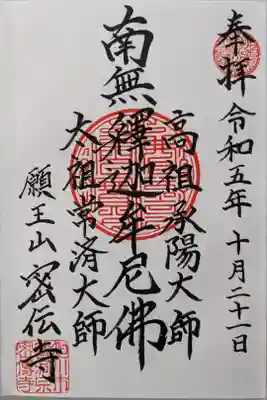 奉拝 令和五年十月二十一日
高祖承陽大師
南無釋迦牟尼佛
太祖常済大師
願王山密伝寺